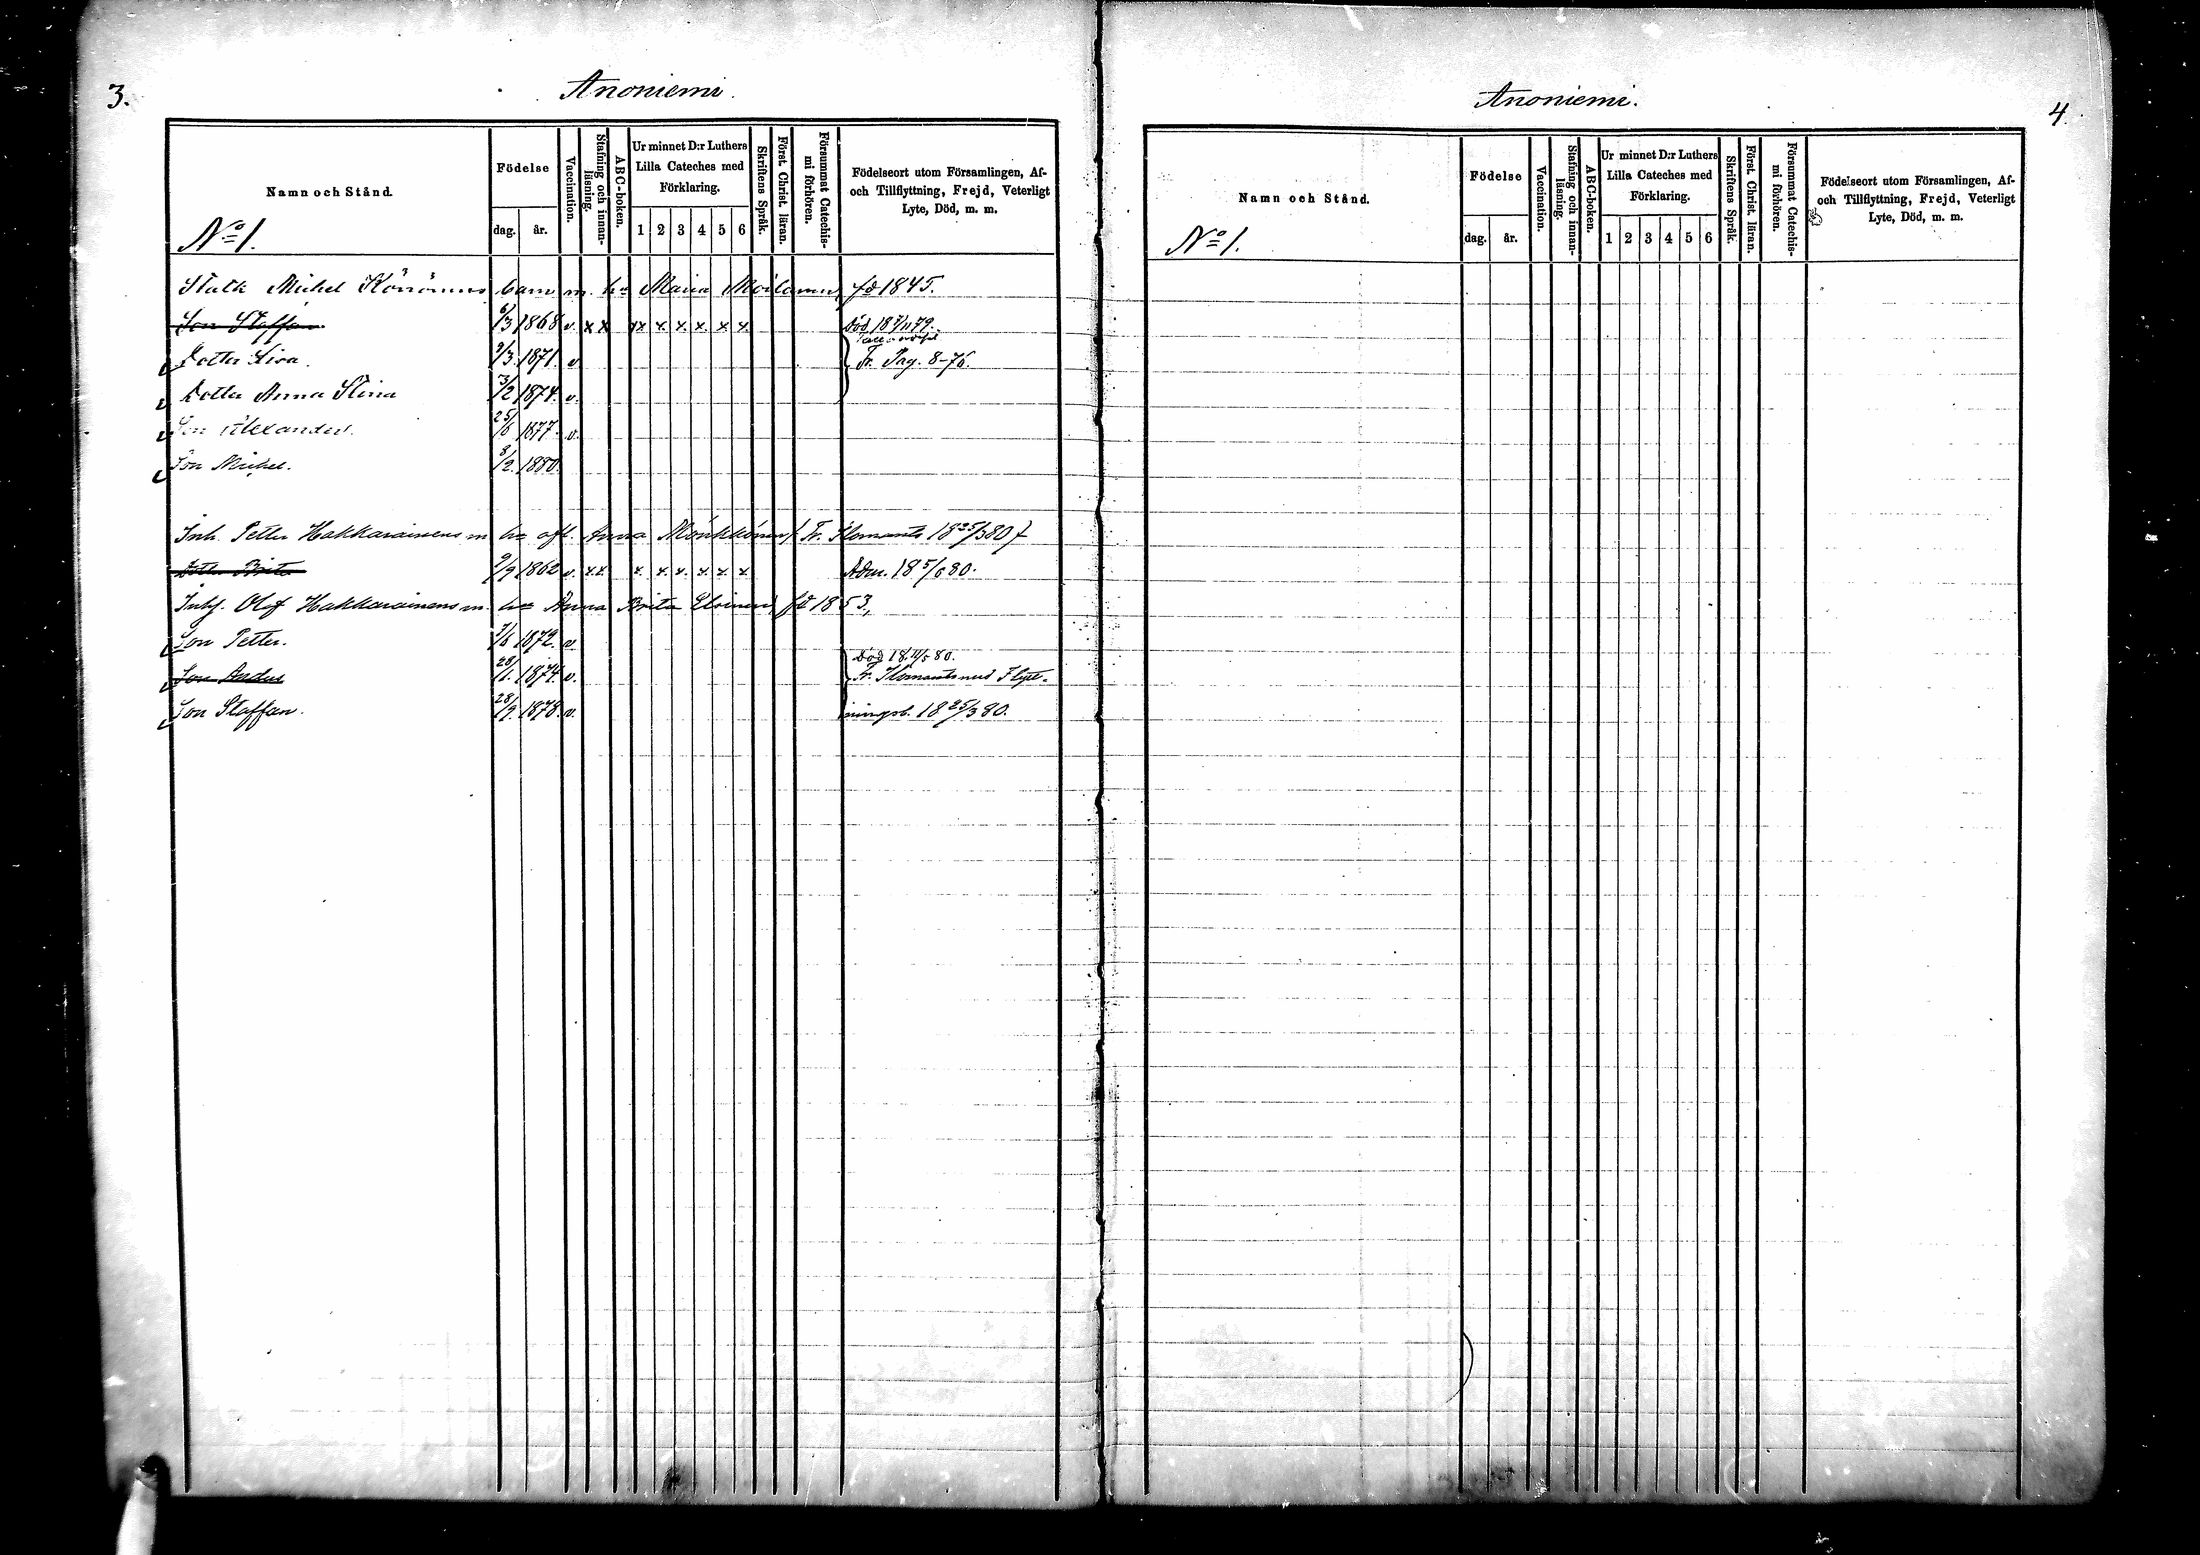 3.
Anoniemi.
Namn och Stånd.
Födelse
dag.
år.
Vaccination.
Stafning och innanläsning.
ABC-boken.
Ur minnet D:r Luthers
Lilla Cateches med
Förklaring.
1 2 3 4 5 6
Skriftens Språk.
Först. Christ. läran.
Försummat Catechismi förhören.
Födelseort utom Församlingen, Af-
och Tillflyttning, Frejd, Veterligt
Lyte, Död, m. m.
No 1.
Statk Michel Körrönens barn m. ha Maria Moilanen, fd 1845.
Son Staffan 6/3 1868 v. x x x x. x. x. x. x. Död 18 7/11 79.
Dotter Lisa. 9/3. 1871. v. Fr. Pag. 8-76.
Dotter Anna Stina 3/2 1874. v.
Son Alexander. 25/6 1877. v.
Son Michel. 8/2. 1880.
Inh. Petter Hakkarainens m ha afl. Anna Mönkkönen (Fr. Ilomants 18 25/3 80)
Dotter Brita 9/9 1862 v. x.x. x. x. x. x. x. x. Adm. 18 5/6 80.
Inhs. Olof Hakkarainens m. ha Anna Brita fd 1853,
Son Petter. 7/6 1872. v.
Död 80.
Son Anders 28/1. 1874. v. Fr. Ilomants med Flytt-
Son Staffan. 28/9. 1878. v. ningsb. 18 25/3 80.
4.
Anoniemi.
Namn och Stånd.
Födelse
dag.
år.
Vaccination.
Stafning och innanläsning.
ABC-boken.
Ur minnet D:r Luthers
Lilla Cateches med
Förklaring.
1 2 3 4 5 6
Skriftens Språk.
Först. Christ. läran.
Försummat Catechismi förhören.
Födelseort utom Församlingen, Af-
och Tillflyttning, Frejd, Veterligt
Lyte, Död, m. m.
No 1.